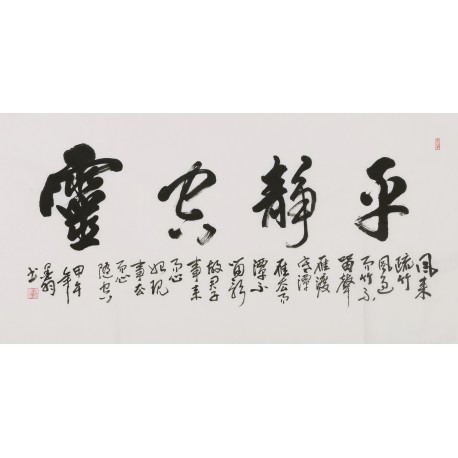 平静空靈
風来
疏竹
風過
而竹不
留聲
雁渡
寒潭
雁去而
潭不
留影
故君子
事来
而心
始現
事去
而心
随空
甲午
年
翁
书